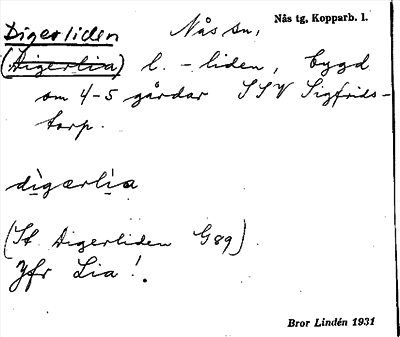 Digerliden Nås sn, Nås tg, Kopparb. l.
(Digerlia) l. -liden, bygd
om 4-5 gårdar SSV Sigfrids-
torp.
digærlia
(St. Digerliden G89)
Jfr Lia!.
Bror Lindén 1931